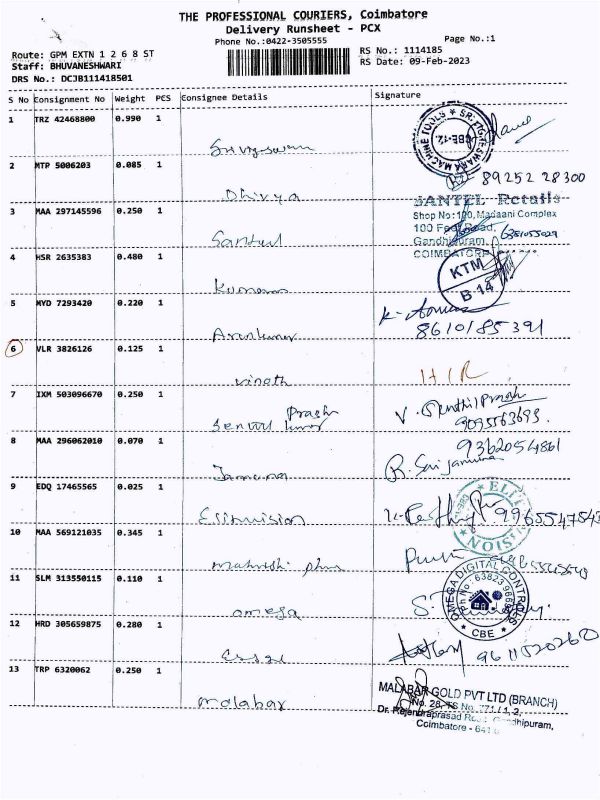 THE PROFESSIONAL COURIERS, Coimbatore
Delivery Runsheet - PCX
Phone No.:0422-3505555
Page No.:1
Route: GPM EXTN 1 2 6 8 ST
RS No.: 1114185
Staff: BHUVANESHWARI
RS Date: 09-Feb-2023
DRS No.: DCJB111418501
S No Consignment No Weight PCS Consignee Details Signature
1 TRZ 42468800 0.990 1
MACHINE TOOLS CBE-12.
2 MTP 5006203 0.085 1 Dhivya 89252 28300
3 MAA 297145596 0.250 1 Santul
SANTEL Retails
Shop No:100, Madaani Complex
100 Feet Road,
Gandhipuram,
COIMBATORE
4 HSR 2635383 0.480 1 Kumaran
KTM
B-14
5 MYD 7293420 0.220 1 Arunkumar
8610185391
6 VLR 3826126 0.125 1 vinoth
7 IXM 503096670 0.250 1 Senthil kumar Prasth V. Senthil
9095563693
8 MAA 296062010 0.070 1 Jamuna
9362054861
R. Saijamuna
9 EDQ 17465565 0.025 1 Elitevision
ELITE VISION
9965547543
10 MAA 569121035 0.345 1
11 SLM 313550115 0.110 1 omega
OMEGA DIGITAL CONTROLS
CBE
12 HRD 305659875 0.280 1
9611520260
13 TRP 6320062 0.250 1 malabar
MALABAR GOLD PVT LTD (BRANCH)
No. 26, TS No. 771/1,2,
Dr. Rajendraprasad Road, Gandhipuram,
Coimbatore - 641